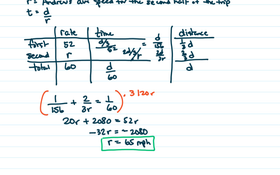 r = Andrew's avg speed for the second half of the trip
t = d/r
rate time distance
first 52 (d/3)/52 = d/156 1/3 d
second r (2d/3)/r = 2d/3r 2/3 d
total 60 d/60 d
(1/156 + 2/3r = 1/60) · 3120r
20r + 2080 = 52r
-32r = -2080
r = 65 mph